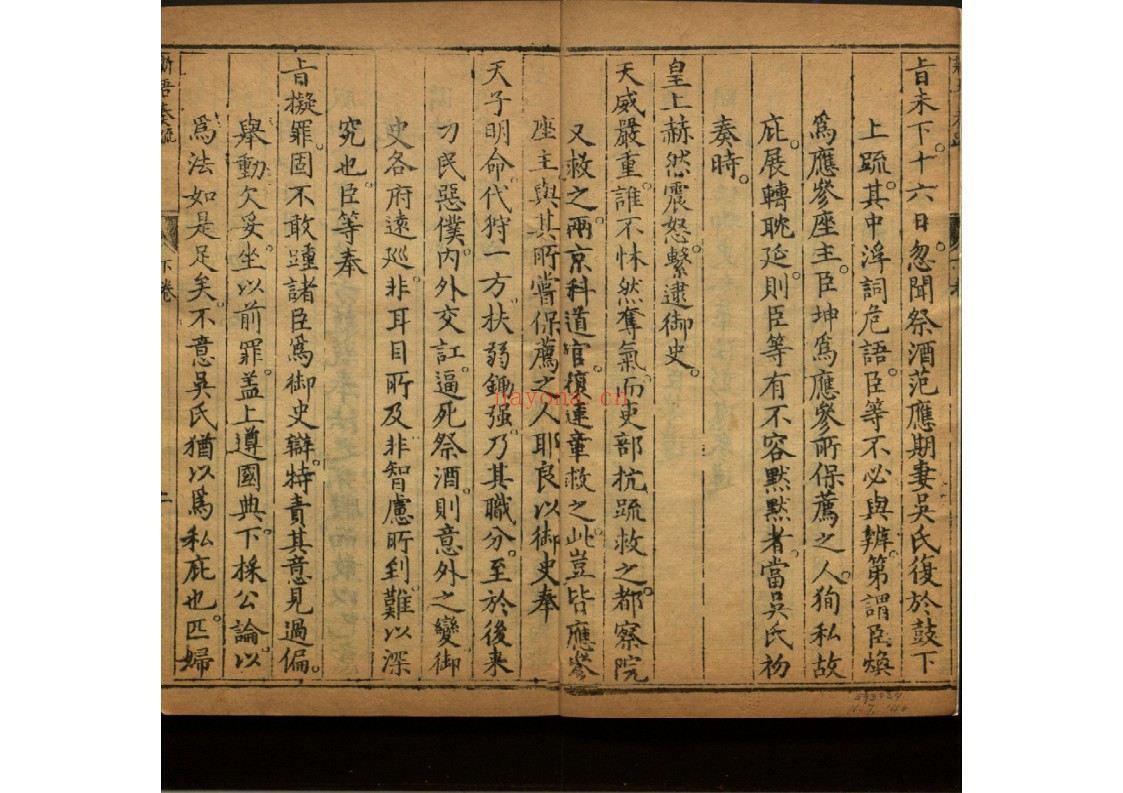 旨未下。十六日。忽聞祭酒范應期妻吳氏復於鼓下
上疏。其中浮詞危語。臣等不必與辨。第謂臣煥
爲應參座主。臣坤爲應參所保薦之人。狥私故
庇。展轉眈延。則臣等有不容默默者。當吳氏初
奏時。
皇上赫然震怒。繫逮御史。
天威嚴重。誰不怵然奪氣。而吏部抗疏救之。都察院
又救之。兩京科道官。復連章救之。此豈皆應參
座主與其所嘗保薦之人耶。良以御史奉
天子明命。代狩一方。扶弱鋤强。乃其職分。至於後來
刁民惡僕。內外交訌。逼死祭酒。則意外之變。御
史各府遠巡。非耳目所及。非智慮所到。難以深
究也。臣等奉
旨擬罪。固不敢踵諸臣爲御史辯。特責其意見過偏。
舉動欠妥。坐以前罪。蓋上遵國典。下採公論。以
爲法如是足矣。不意吳氏猶以爲私庇也。匹婦
奏疏
下卷
nayona.cn